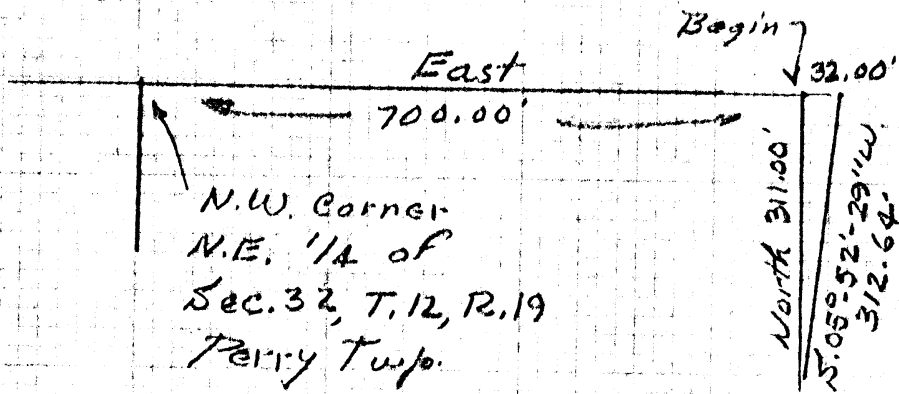 Begin
East
32.00'
700.00'
N.W. Corner
N.E. 1/4 of
Sec. 32, T.12, R.19
Perry Twp.
North 311.00'
S.05°-52'-29"W.
312.64'